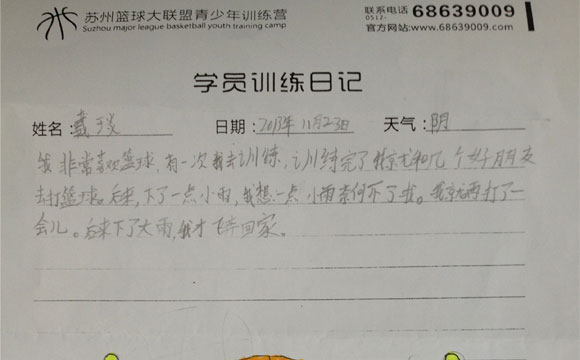 苏州篮球大联盟青少年训练营
Suzhou major league basketball youth training camp
联系电话 0512- 68639009
官方网站:www.68639009.com
学员训练日记
姓名: 戴 日期: 2013年11月23日 天气: 阴
我非常喜欢篮球,有一次我去训练,训练完了我就和几个好朋友
去打篮球。后来,下了一点小雨,我想一点小雨奈何不了我。我就再打了一
会儿。后来下了大雨,我才飞奔回家。